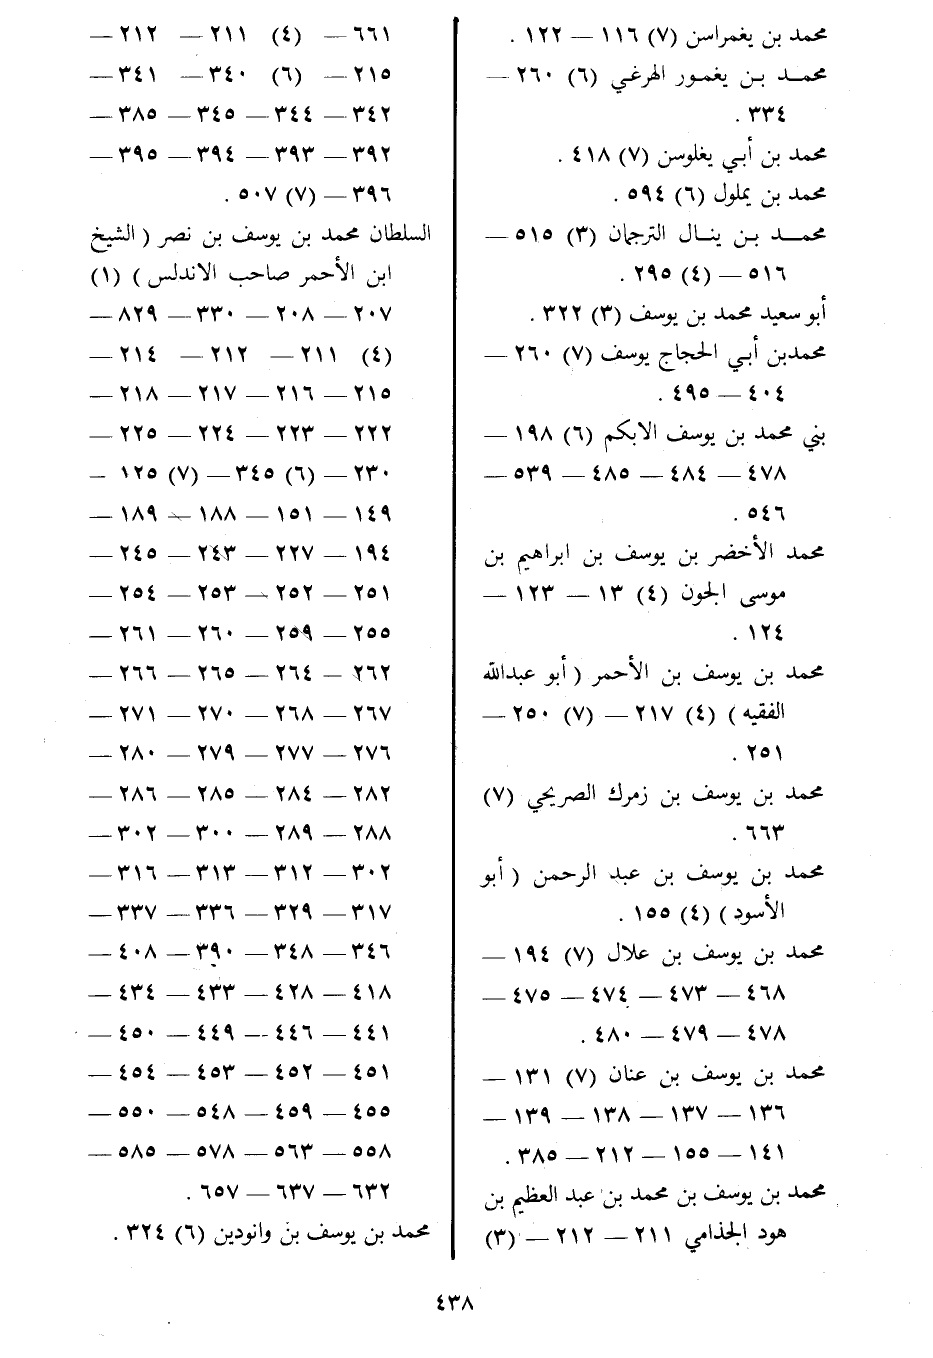 محمد بن يغمراسن (٧) ١١٦ — ١٢٢ .
محمـد بـن يغمـور الهرغي (٦) ٢٦٠ —
٣٣٤ .
محمد بن أبـي يغلوسن (٧) ٤١٨ .
محمد بن يملول (٦) ٥٩٤ .
محمـد بـن ينـال الترجمان (٣) ٥١٥ —
٥١٦ — (٤) ٢٩٥ .
أبو سعيد محمد بن يوسف (٣) ٣٢٢ .
محمدبن أبـي الحجاج يوسف (٧) ٢٦٠ —
٤٠٤ — ٤٩٥ .
بني محمد بن يوسف الابكم (٦) ١٩٨ —
٤٧٨ — ٤٨٤ — ٤٨٥ — ٥٣٩ —
٥٤٦ .
محمد الأخضر بن يوسف بن ابراهيم بن
موسى الجون (٤) ١٣ — ١٢٣ —
١٢٤ .
محمد بن يوسف بن الأحمر ( أبو عبدالله
الفقيه ) (٤) ٢١٧ — (٧) ٢٥٠ —
٢٥١ .
محمد بن يوسف بن زمرك الصريحي (٧)
٦٦٣ .
محمد بن يوسف بن عبد الرحمن ( أبو
الأسود ) (٤) ١٥٥ .
محمد بن يوسف بن علال (٧) ١٩٤ —
٤٦٨ — ٤٧٣ — ٤٧٤ — ٤٧٥ —
٤٧٨ — ٤٧٩ — ٤٨٠ .
محمد بن يوسف بن عنان (٧) ١٣١ —
١٣٦ — ١٣٧ — ١٣٨ — ١٣٩ —
١٤١ — ١٥٥ — ٢١٢ — ٣٨٥ .
محمد بن يوسف بن محمد بن عبد العظيم بن
هود الجذامي ٢١١ — ٢١٢ — (٣)
٦٦١ — (٤) ٢١١ — ٢١٢ —
٢١٥ — (٦) ٣٤٠ — ٣٤١ —
٣٤٢ — ٣٤٤ — ٣٤٥ — ٣٨٥ —
٣٩٢ — ٣٩٣ — ٣٩٤ — ٣٩٥ —
٣٩٦ — (٧) ٥٠٧ .
السلطان محمد بن يوسف بن نصر ( الشيخ
ابن الأحمر صاحب الاندلس ) (١)
٢٠٧ — ٢٠٨ — ٣٣٠ — ٨٢٩ —
(٤) ٢١١ — ٢١٢ — ٢١٤ —
٢١٥ — ٢١٦ — ٢١٧ — ٢١٨ —
٢٢٢ — ٢٢٣ — ٢٢٤ — ٢٢٥ —
٢٣٠ — (٦) ٣٤٥ — (٧) ١٢٥ —
١٤٩ — ١٥١ — ١٨٨ — ١٨٩ —
١٩٤ — ٢٢٧ — ٢٤٣ — ٢٤٥ —
٢٥١ — ٢٥٢ — ٢٥٣ — ٢٥٤ —
٢٥٥ — ٢٥٩ — ٢٦٠ — ٢٦١ —
٢٦٢ — ٢٦٤ — ٢٦٥ — ٢٦٦ —
٢٦٧ — ٢٦٨ — ٢٧٠ — ٢٧١ —
٢٧٦ — ٢٧٧ — ٢٧٩ — ٢٨٠ —
٢٨٢ — ٢٨٤ — ٢٨٥ — ٢٨٦ —
٢٨٨ — ٢٨٩ — ٣٠٠ — ٣٠٢ —
٣٠٢ — ٣١٢ — ٣١٣ — ٣١٦ —
٣١٧ — ٣٢٩ — ٣٣٦ — ٣٣٧ —
٣٤٦ — ٣٤٨ — ٣٩٠ — ٤٠٨ —
٤١٨ — ٤٢٨ — ٤٣٣ — ٤٣٤ —
٤٤١ — ٤٤٦ — ٤٤٩ — ٤٥٠ —
٤٥١ — ٤٥٢ — ٤٥٣ — ٤٥٤ —
٤٥٥ — ٤٥٩ — ٥٤٨ — ٥٥٠ —
٥٥٨ — ٥٦٣ — ٥٧٨ — ٥٨٥ —
٦٣٢ — ٦٣٧ — ٦٥٧ .
محمد بن يوسف بن وانودين (٦) ٣٢٤ .
٤٣٨